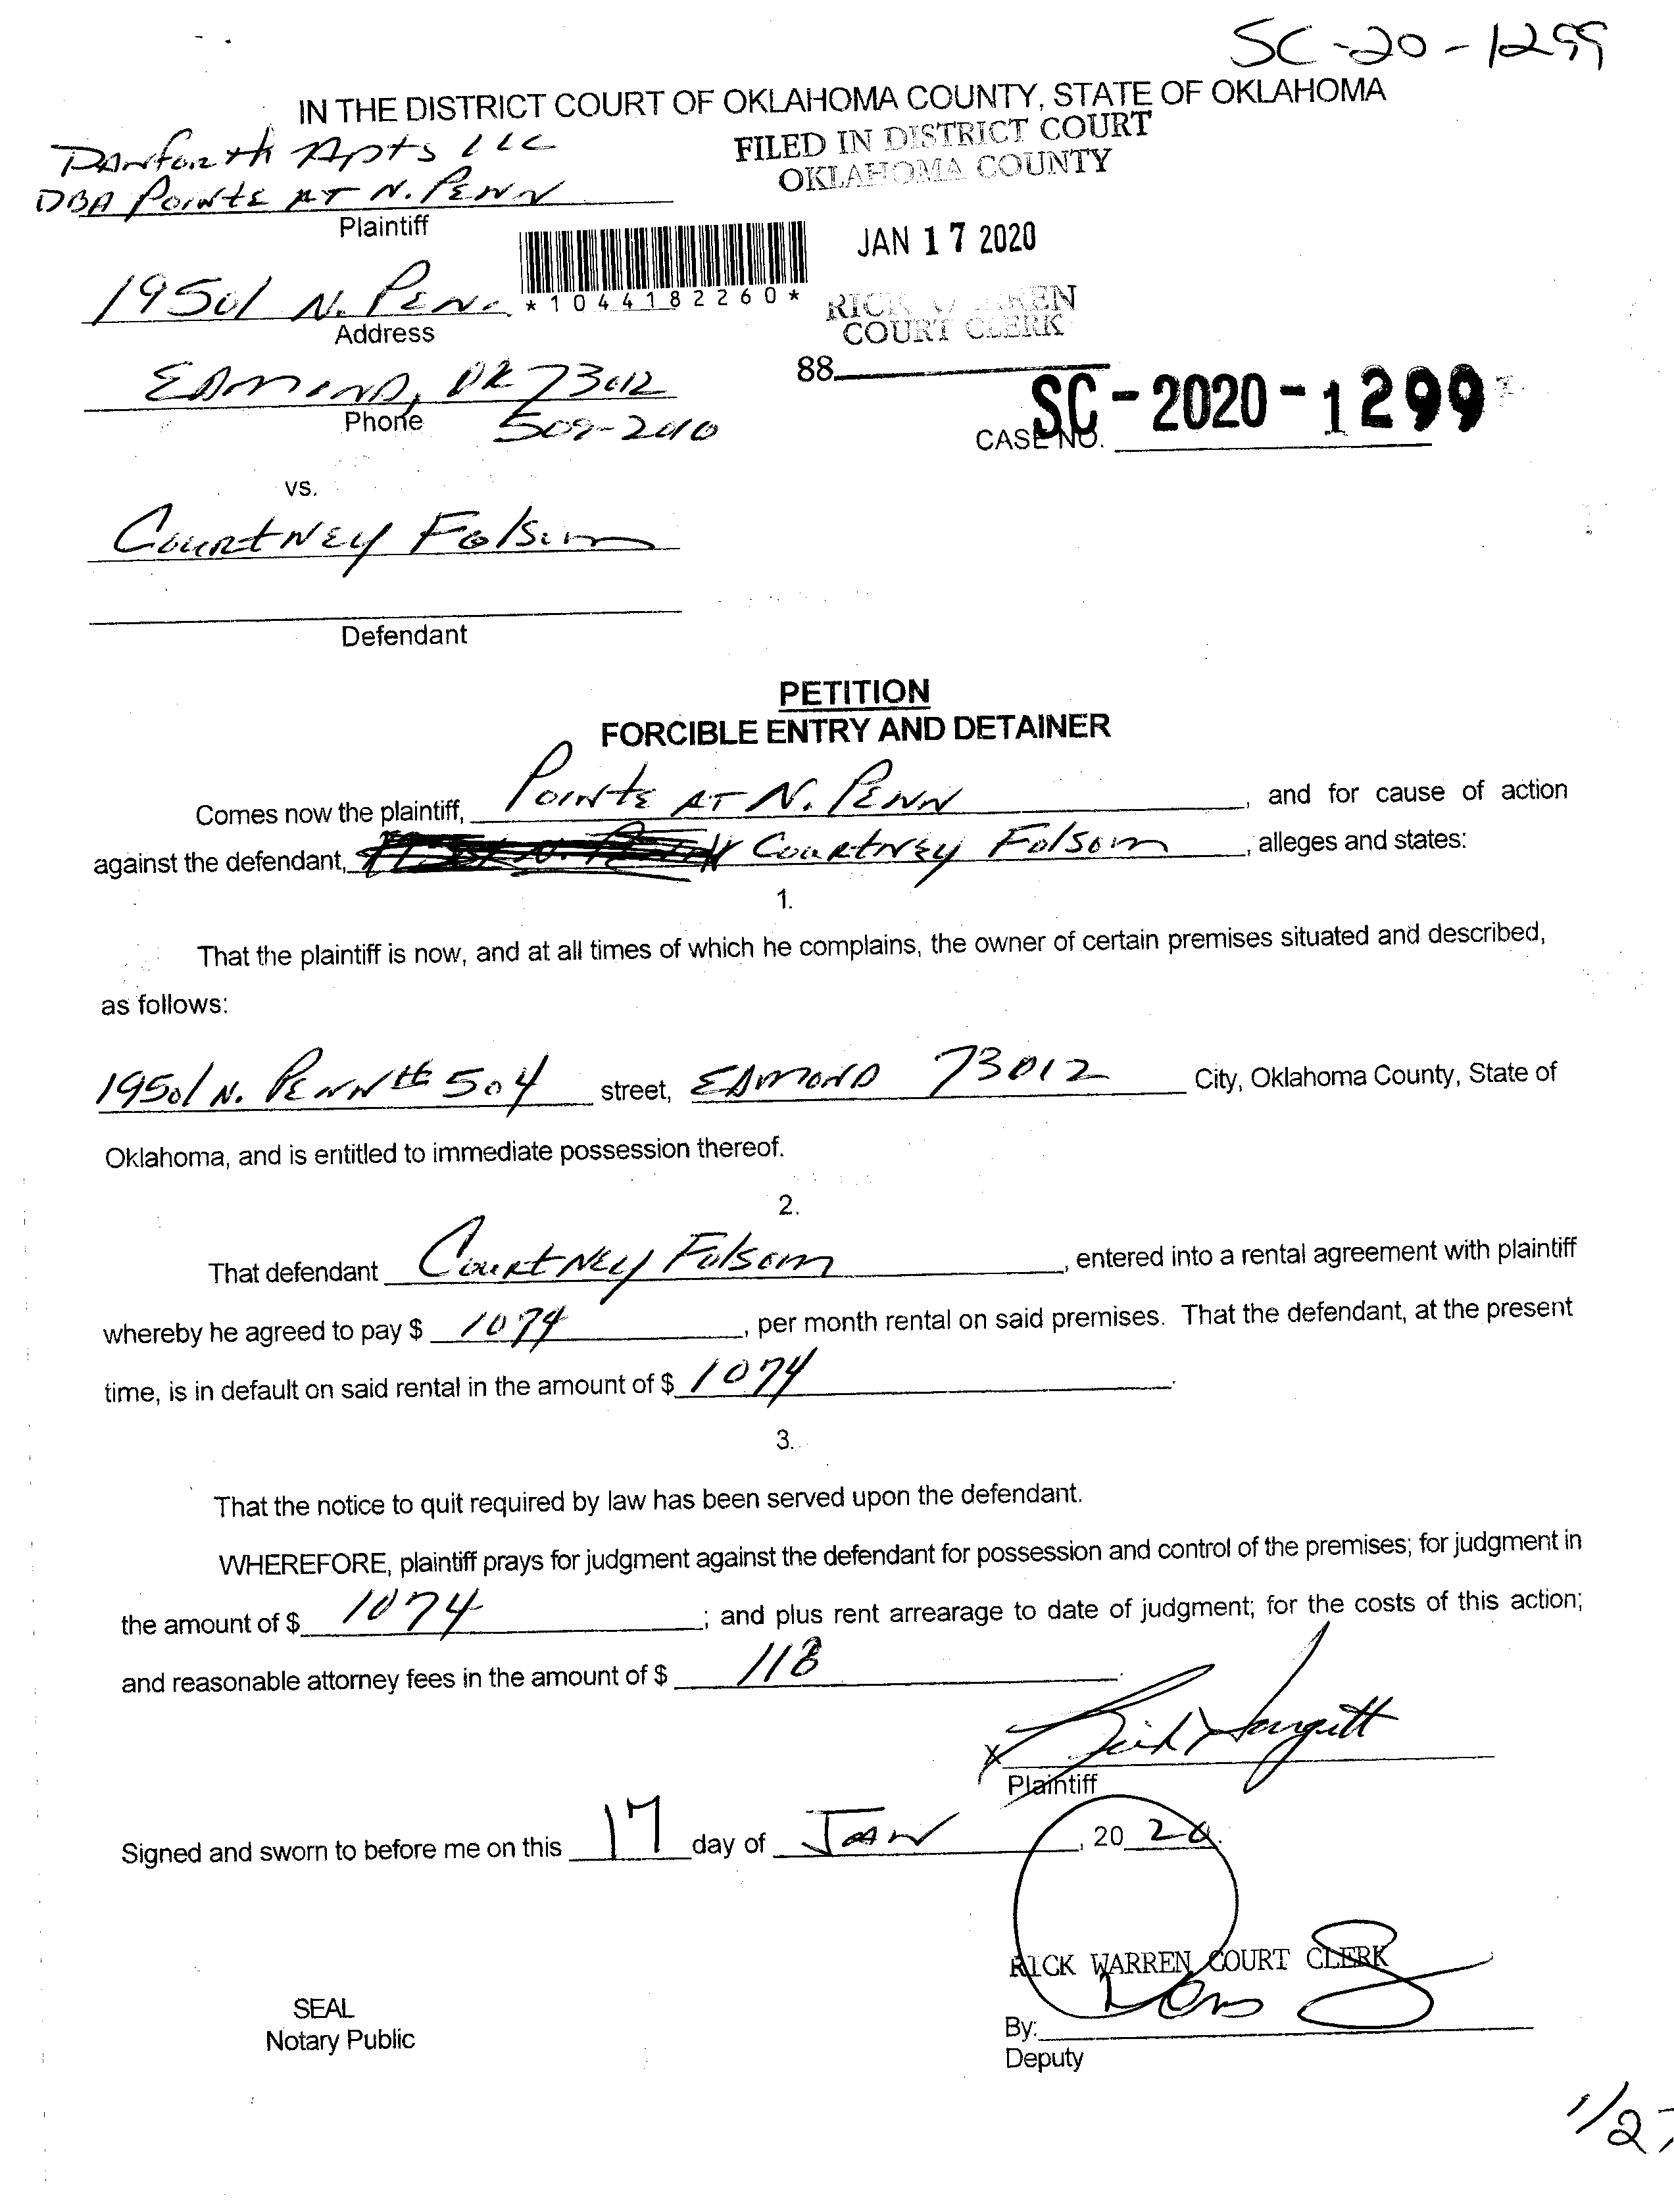 SC-20-1299
IN THE DISTRICT COURT OF OKLAHOMA COUNTY, STATE OF OKLAHOMA
Danforth Apts LLC
FILED IN DISTRICT COURT
OKLAHOMA COUNTY
DBA Pointe AT N. PENN
Plaintiff
JAN 17 2020
19501 N. Penn
*1044182260*
Address
RICK WARREN
COURT CLERK
88
EDMOND, OK 73012
Phone 509-2010
SC-2020-1299
CASE NO.
vs.
Courtney Folsom
Defendant
PETITION
FORCIBLE ENTRY AND DETAINER
Comes now the plaintiff, Pointe AT N. PENN, and for cause of action
against the defendant, Courtney Folsom, alleges and states:
1.
That the plaintiff is now, and at all times of which he complains, the owner of certain premises situated and described,
as follows:
19501 N. PENN # 504 street, EDMOND 73012 City, Oklahoma County, State of
Oklahoma, and is entitled to immediate possession thereof.
2.
That defendant Courtney Folsom, entered into a rental agreement with plaintiff
whereby he agreed to pay $ 1074, per month rental on said premises. That the defendant, at the present
time, is in default on said rental in the amount of $ 1074.
3.
That the notice to quit required by law has been served upon the defendant.
WHEREFORE, plaintiff prays for judgment against the defendant for possession and control of the premises; for judgment in
the amount of $ 1074; and plus rent arrearage to date of judgment; for the costs of this action;
and reasonable attorney fees in the amount of $ 118.
X
Plaintiff
Signed and sworn to before me on this 17 day of JAN, 20 20.
RICK WARREN COURT CLERK
SEAL
Notary Public
By:
Deputy
1/27